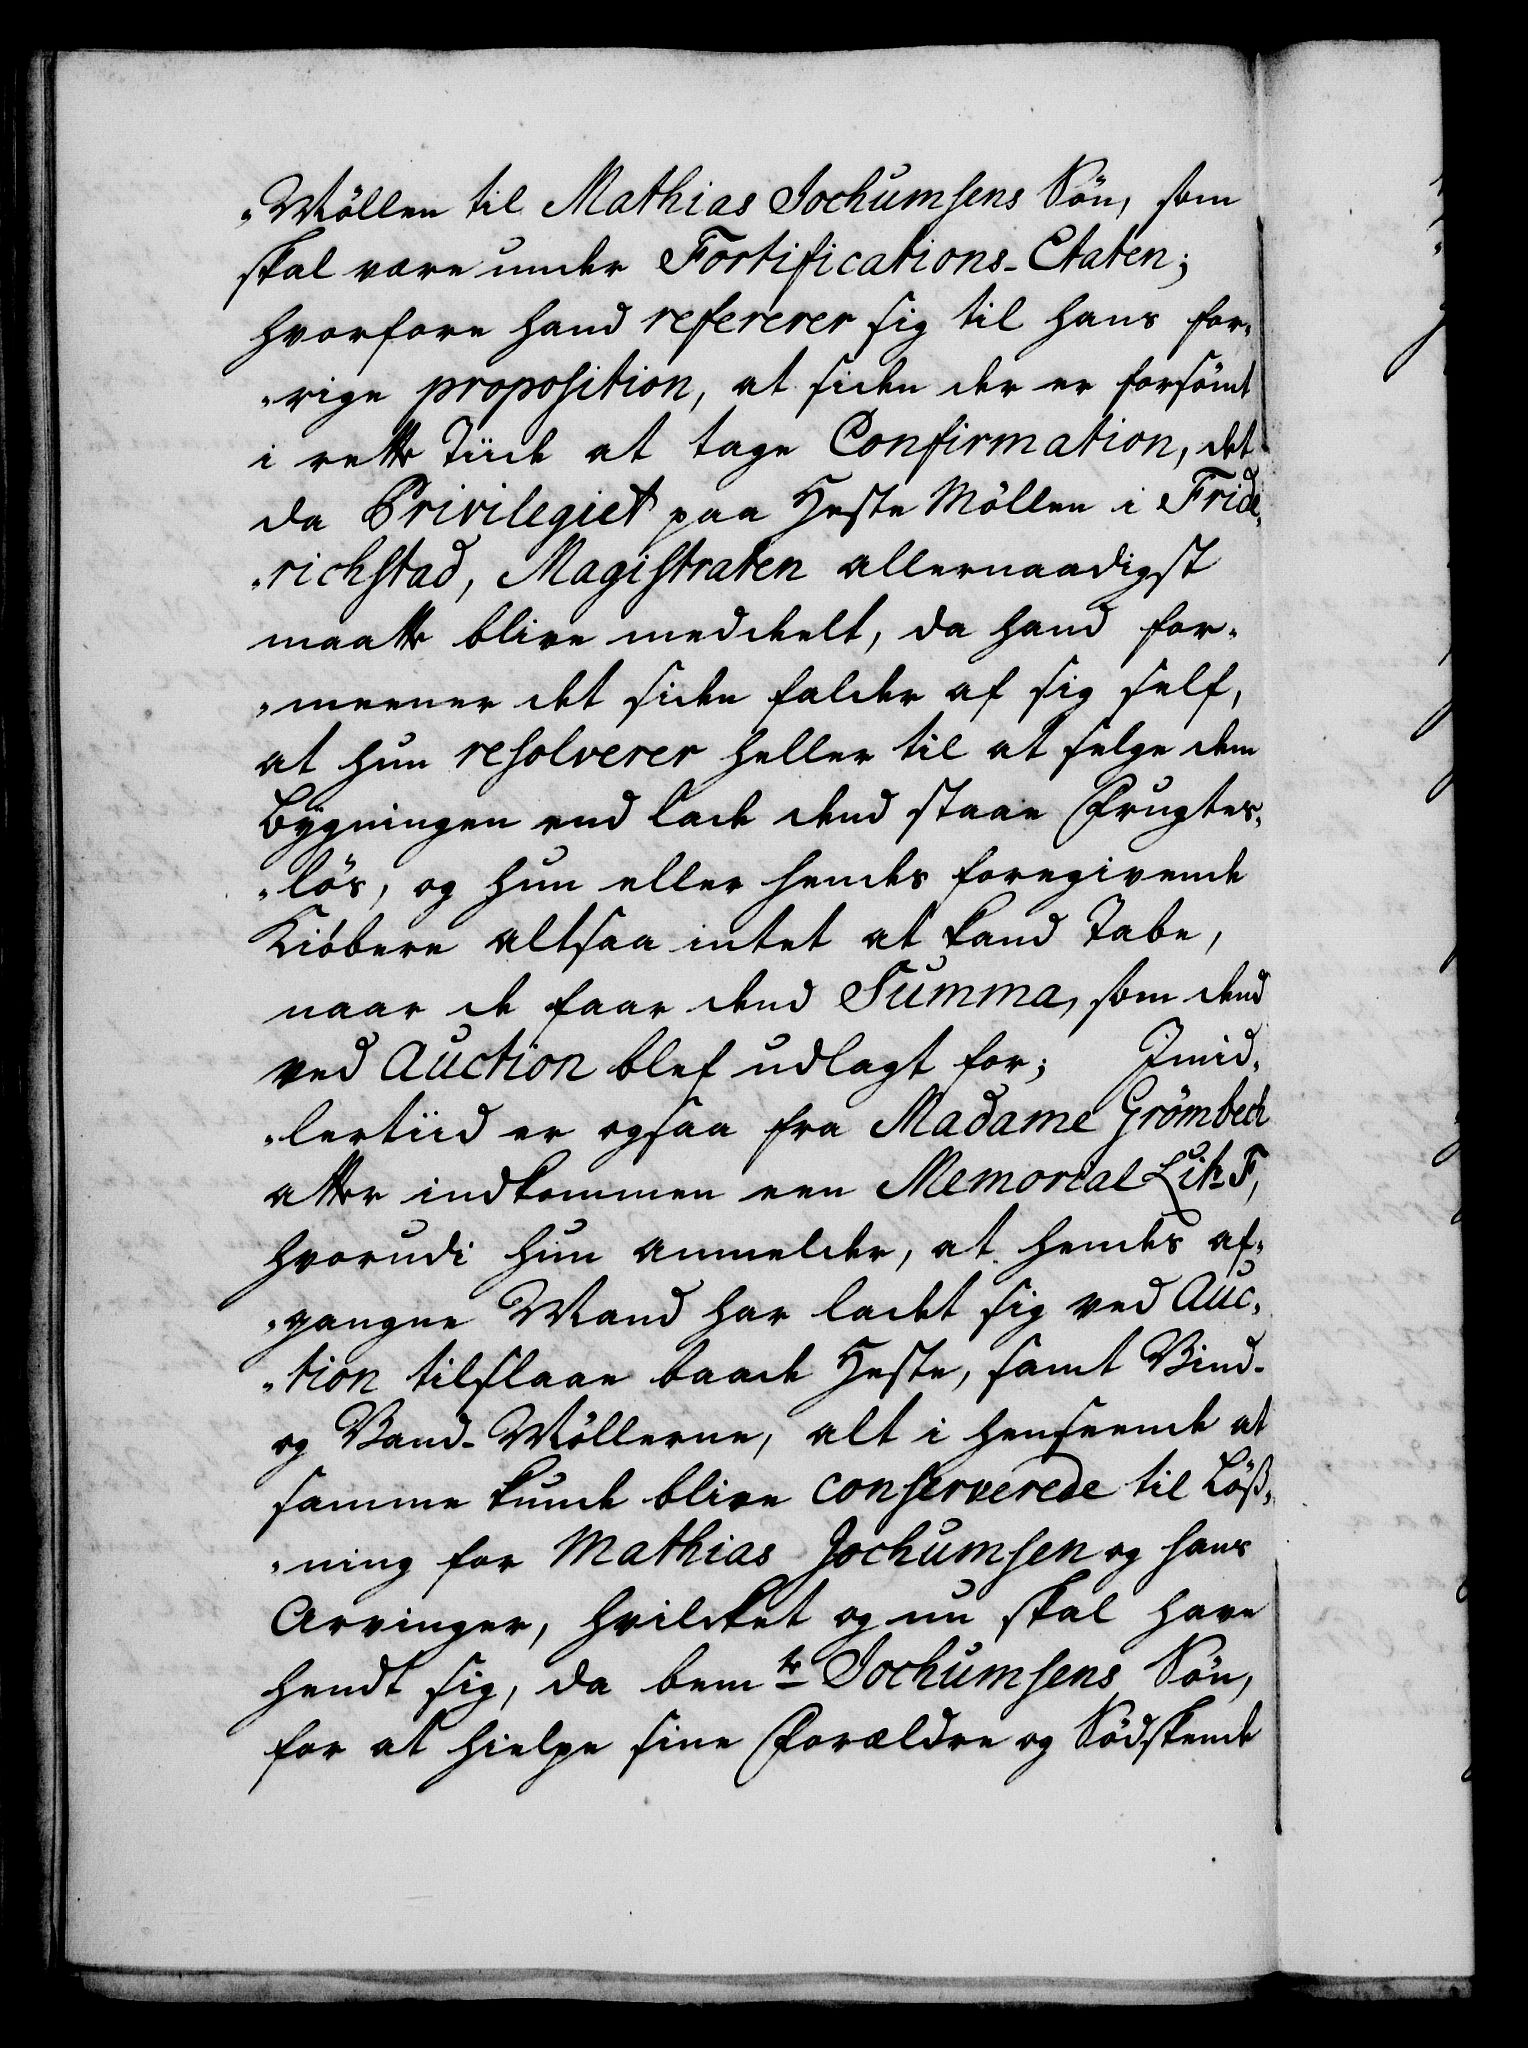 "Møllen til Mathias Jochumsens Sön, som
skal være under Fortifications-Etaten;
hvorfore hand refererer sig til hans for-
"rige proposition, at siden der er forsömt
i rette Tiide at tage Confirmation, det
da Privilegiet paa Heste Möllen i Fride-
"richstad, Magistraten allernaadigst
maatte blive meddeelt, da hand for-
"meener det siden falder af sig self,
at hun resolverer heller til at selge dem
Bygningen end lade dend staae Frugtes-
"lös, og hun eller hendes foregivende
Kiöbere altsaa intet at kand Tabe,
naar de faar dend Summa, som dend
ved Auction blef udlagt for; Imid-
"lertiid er ogsaa fra Madame Grömbech
atter indkommen een Memorial Lit. F,
hvorudi hun anmelder, at hendes af-
"gangne Mand har ladet sig ved Auc-
"tion tilslaae baade Heste, samt Vind-
og Vand-Möllerne, alt i henseende at
samme kunde blive conserverede til Löß-
"ning for Mathias Jochumsen og hans
Arvinger, hvilcket og nu skal have
hendt sig, da bemte Jochumsens Sön,
for at hielpe sine Forældre og Södskende